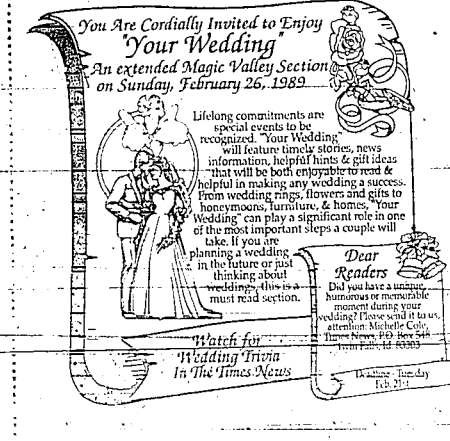 You Are Cordially Invited to Enjoy
"Your Wedding"
An extended Magic Valley Section
on Sunday, February 26, 1989
Lifelong commitments are
special events to be
recognized. "Your Wedding"
will feature timely stories, news
information, helpful hints & gift ideas
that will be both enjoyable to read &
helpful in making any wedding a success.
From wedding rings, flowers and gifts to
honeymoons, furniture, & homes, "Your
Wedding" can play a significant role in one
of the most important steps a couple will
take. If you are
planning a wedding
in the future or just
thinking about
weddings, this is a
must read section.
Watch for
Wedding Trivia
In The Times News
Dear
Readers
Did you have a unique,
humorous or memorable
moment during your
wedding? Please send it to us,
attention: Michelle Cole,
Times News, P.O. Box 548
Twin Falls, Id. 83303
Deadline - Tuesday
Feb. 21st